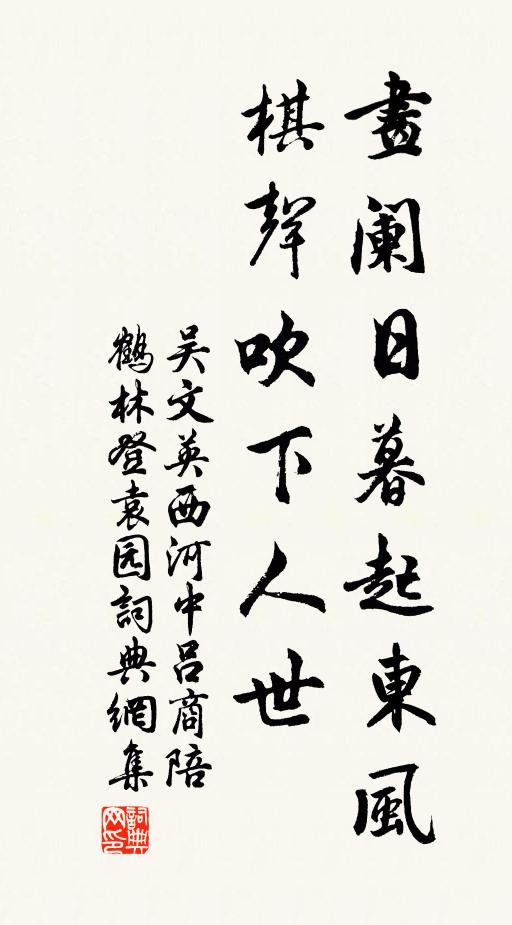 畫阑日暮起東風
棋聲吹下人世
吴文英西河中吕商陪
鶴林登袁园詞典網集
詞典
网印